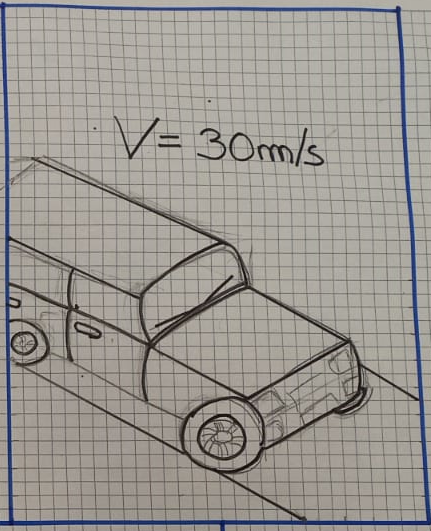 V = 30m/s